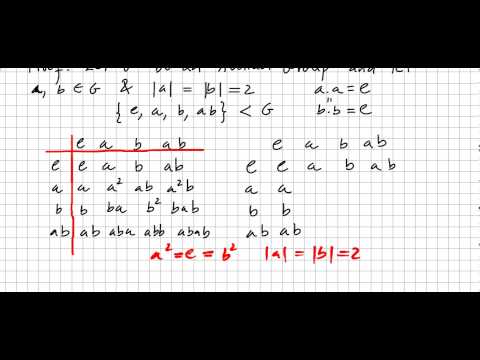 and let
a, b ∈ G & |a| = |b| = 2 a.a = e
{ e, a, b, ab } < G b.b = e
e a b ab
e e a b ab
a a a² ab a²b
b b ba b² bab
ab ab aba abb abab
e a b ab
e e a b ab
a a
b b
ab ab
a² = e = b² |a| = |b| = 2